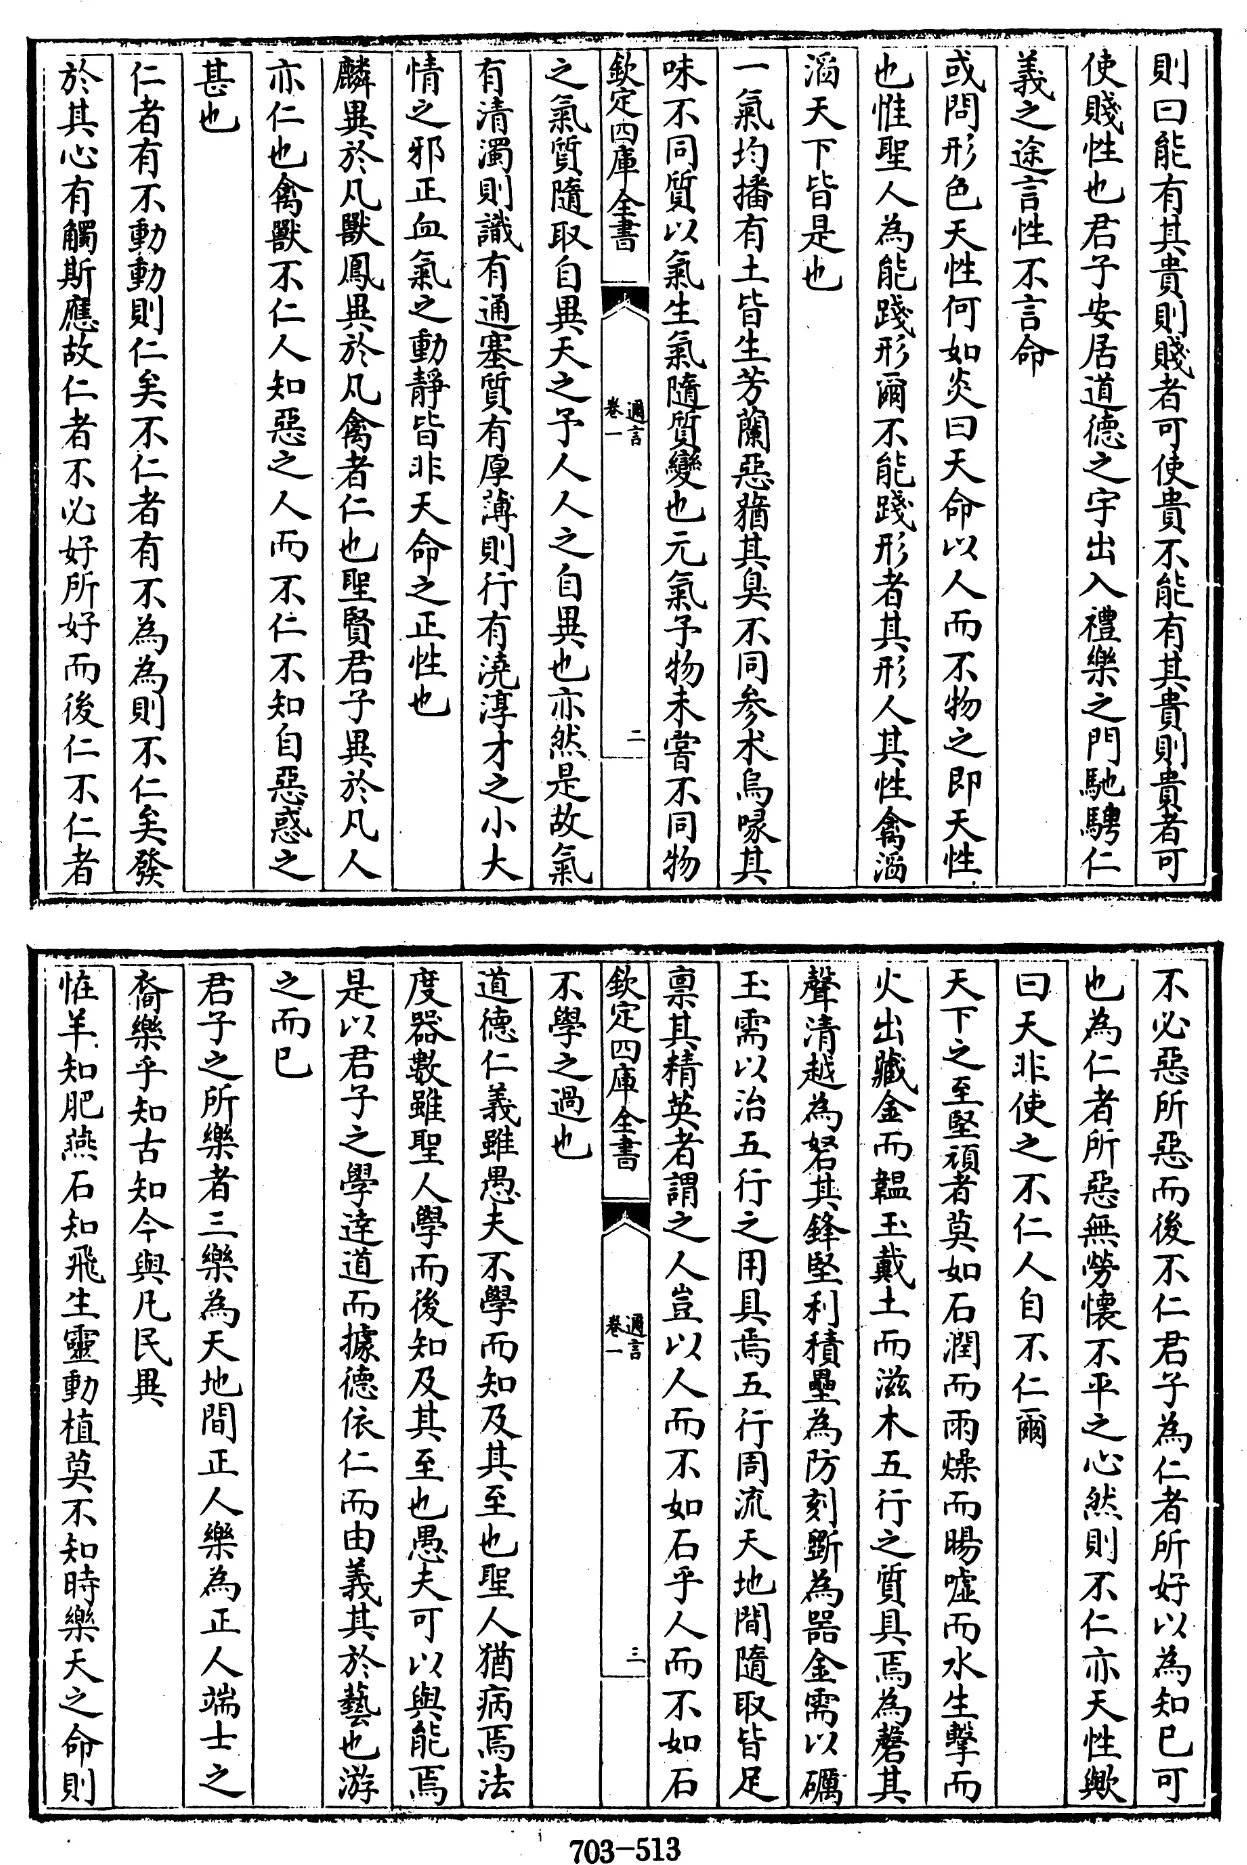 則曰能有其貴則賤者可使貴不能有其貴則貴者可
使賤性也君子安居道德之宇出入禮樂之門馳騁仁
義之途言性不言命
或問形色天性何如炎曰天命以人而不物之即天性
也惟聖人為能踐形爾不能踐形者其形人其性禽滔
滔天下皆是也
一氣均播有土皆生芳蘭惡蕕其臭不同參术烏喙其
味不同質以氣生氣隨質變也元氣予物未嘗不同物
欽定四庫全書
邇言
卷一
二
之氣質隨取自異天之予人人之自異也亦然是故氣
有清濁則識有通塞質有厚薄則行有澆淳才之小大
情之邪正血氣之動靜皆非天命之正性也
麟異於凡獸鳳異於凡禽者仁也聖賢君子異於凡人
亦仁也禽獸不仁人知惡之人而不仁不知自惡惑之
甚也
仁者有不動動則仁矣不仁者有不為為則不仁矣發
於其心有觸斯應故仁者不必好所好而後仁不仁者
不必惡所惡而後不仁君子為仁者所好以為知已可
也為仁者所惡無勞懷不平之心然則不仁亦天性歟
曰天非使之不仁人自不仁爾
天下之至堅頑者莫如石潤而雨燥而暘噓而水生擊而
火出藏金而韞玉戴土而滋木五行之質具焉為磬其
聲清越為砮其鋒堅利積壘為防刻斲為器金需以礪
玉需以治五行之用具焉五行周流天地間隨取皆足
稟其精英者謂之人豈以人而不如石乎人而不如石
欽定四庫全書
邇言
卷一
三
不學之過也
道德仁義雖愚夫不學而知及其至也聖人猶病焉法
度器數雖聖人學而後知及其至也愚夫可以與能焉
是以君子之學達道而據德依仁而由義其於藝也游
之而已
君子之所樂者三樂為天地間正人樂為正人端士之
裔樂乎知古知今與凡民異
恠羊知肥燕石知飛生靈動植莫不知時樂天之命則
703-513